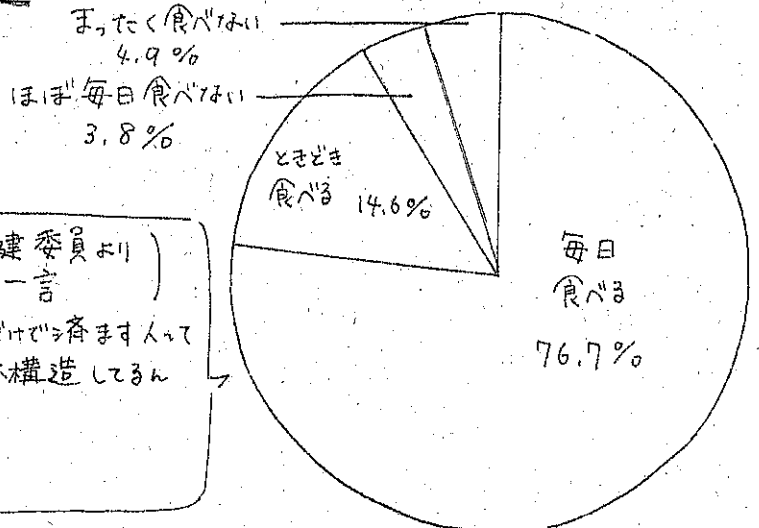 まったく食べない
4.9%
ほぼ毎日食べない
3.8%
ときどき
食べる 14.6%
毎日
食べる
76.7%
建委員より
一言
だけで済ます人って
構造してるん